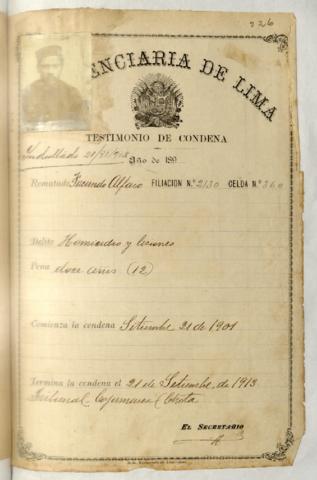 326
ENCIARIA DE LIMA
TESTIMONIO DE CONDENA
Indultado
Año de 189
Rematado Facundo Alfaro FILIACION N.º 2130 CELDA N.º 360
Delito Homicidio y lesiones
Pena doce años (12)
Comienza la condena Setiembre 21 de 1901
Termina la condena el 21 de Setiembre de 1913
Tribunal Cajamarca (Chota
EL SECRETARIO